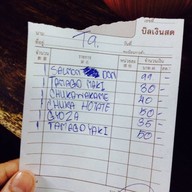 บิลเงินสด
T9.
นาม
วันที่
ที่อยู่
จำนวน
รายการ
จำนวนเงิน
1 SALMON DON 99 -
1 TAMAGO MAKI 30 -
1 CHUKA WAKAME 40 -
1 CHUKA HOTATE 50 -
1 GYOZA 35 -
1 TAMAGO YAKI 50 -